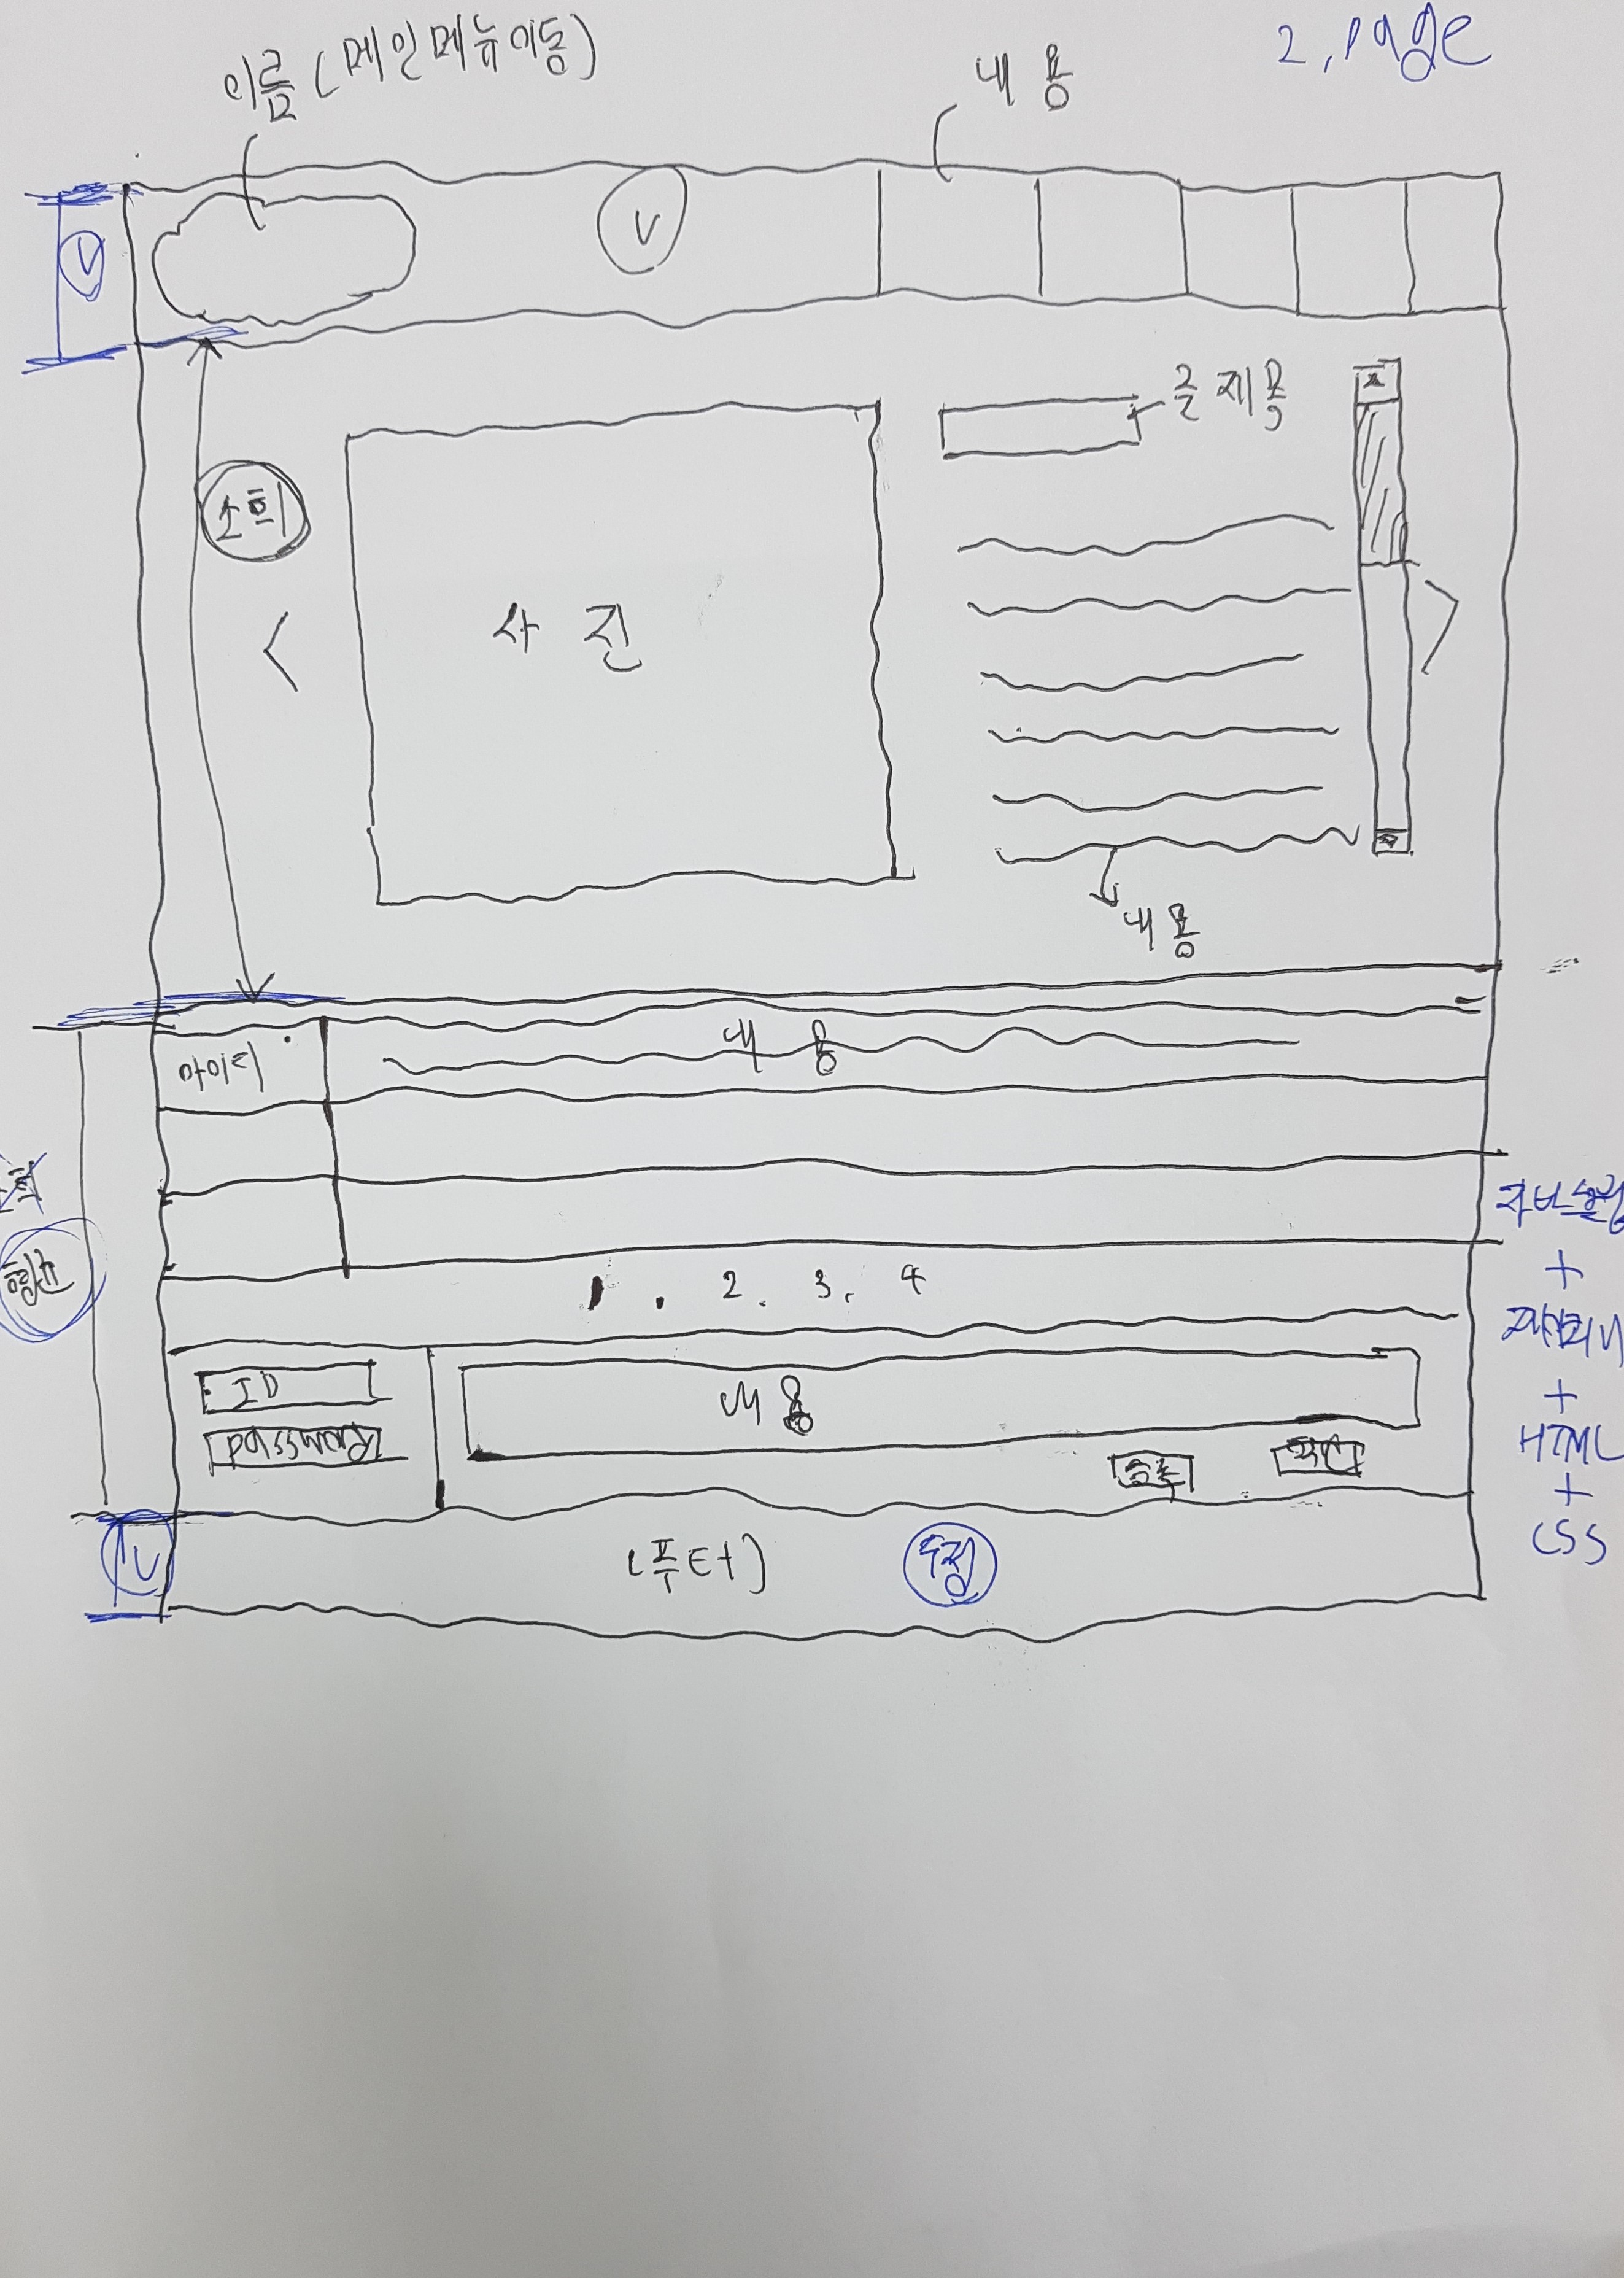 2, page
이름 (메인메뉴이동)
내용
V
V
글제목
소희
<
사 진
>
내용
아이디
내 용
1. 2. 3. 4
ID
password
내용
V
(푸터)
수정
+
+
HTML
+
CSS